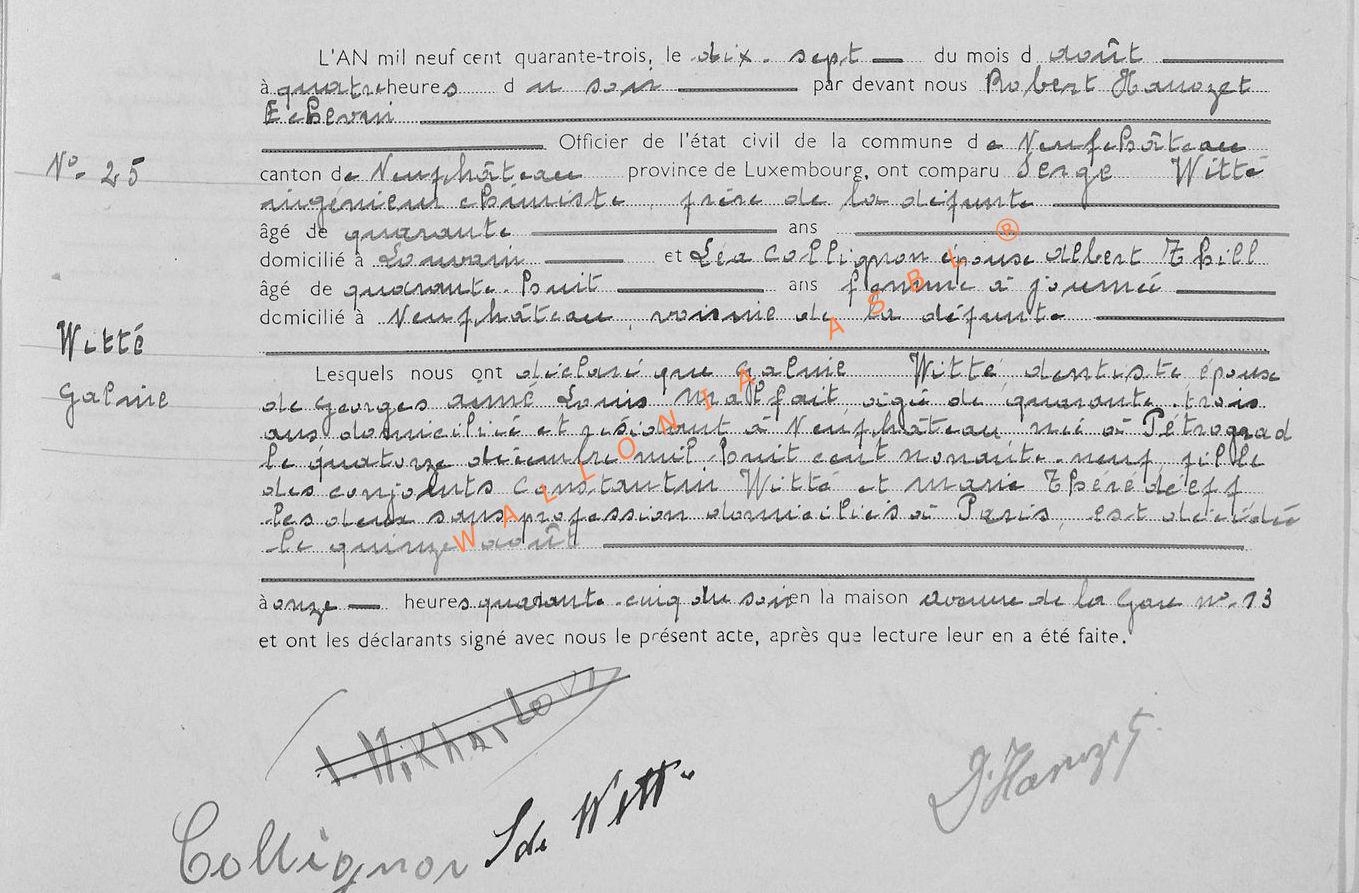 L'AN mil neuf cent quarante-trois, le dix-sept du mois d août
à quatre heures d u soir par devant nous Robert Hanozet
Echevin
Officier de l'état civil de la commune de Neufchâteau
N° 25
canton de Neufchâteau province de Luxembourg, ont comparu Serge Witté
ingénieur chimiste, frère de la défunte
âgé de quarante ans
domicilié à Louvain et Léa Collignon épouse Albert Thill
âgé de quarante-huit ans femme à journée
domicilié à Neufchâteau, voisine de la défunte
Witté
Galnie
Lesquels nous ont déclaré que Galnie Witté, dentiste, épouse
de Georges Aimé Louis Malfait, âgée de quarante-trois
ans domiciliée et résidant à Neufchâteau née à Pétrograd
le quatorze décembre mil huit cent nonante-neuf, fille
des conjoints Constantin Witté et Marie
les deux sans profession domiciliés à Paris, est décédée
le quinze août
à onze heures quarante-cinq du soir en la maison avenue de la Gare n° 13
et ont les déclarants signé avec nous le présent acte, après que lecture leur en a été faite.
WALLONIA ASBL ®
Collignon S de Witt